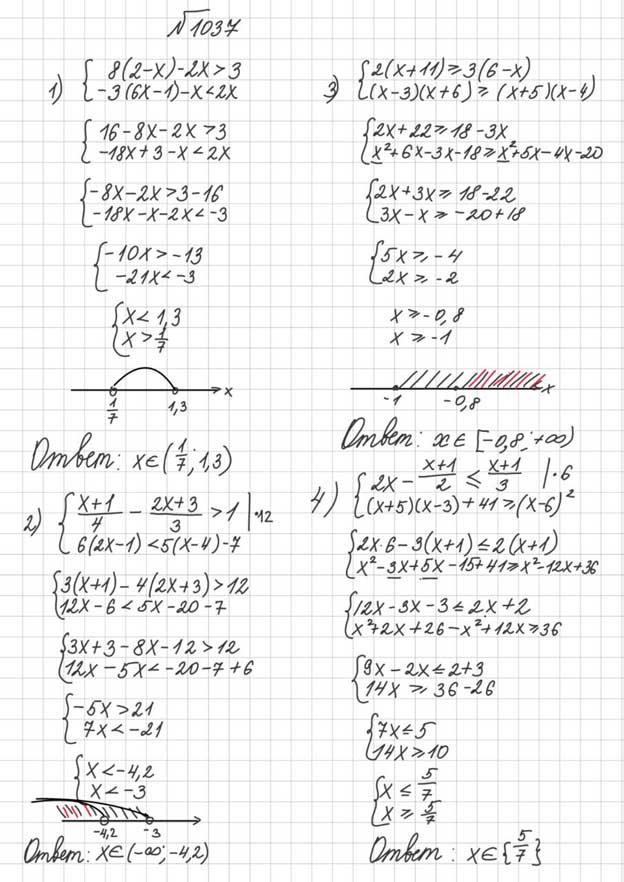 №1037
1) { 8(2-x)-2x>3
-3(6x-1)-x<2x
{ 16-8x-2x>3
-18x+3-x<2x
{ -8x-2x>3-16
-18x-x-2x<-3
{ -10x>-13
-21x<-3
{ x<1,3
x>1/7
1/7 1,3 x
Ответ: x∈(1/7; 1,3)
2) { (x+1)/4 - (2x+3)/3 >1 |·12
6(2x-1)<5(x-4)-7
{ 3(x+1)-4(2x+3)>12
12x-6<5x-20-7
{ 3x+3-8x-12>12
12x-5x<-20-7+6
{ -5x>21
7x<-21
{ x<-4,2
x<-3
-4,2 -3
Ответ: x∈(-∞; -4,2)
3) { 2(x+11)⩾3(6-x)
(x-3)(x+6)⩾(x+5)(x-4)
{ 2x+22⩾18-3x
x²+6x-3x-18⩾x²+5x-4x-20
{ 2x+3x⩾18-22
3x-x⩾-20+18
{ 5x⩾-4
2x⩾-2
x⩾-0,8
x⩾-1
-1 -0,8 x
Ответ: x∈[-0,8; +∞)
4) { 2x - (x+1)/2 ≤ (x+1)/3 |·6
(x+5)(x-3)+41⩾(x-6)²
{ 2x·6-3(x+1)≤2(x+1)
x²-3x+5x-15+41⩾x²-12x+36
{ 12x-3x-3≤2x+2
x²+2x+26-x²+12x⩾36
{ 9x-2x≤2+3
14x⩾36-26
{ 7x≤5
14x⩾10
{ x≤5/7
x⩾5/7
Ответ: x∈{5/7}